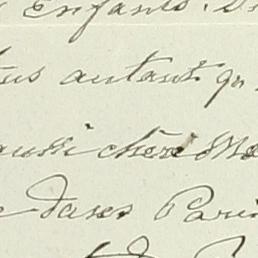 Enfants. D
tus autant qu
aussi chère Me
e dans Paris